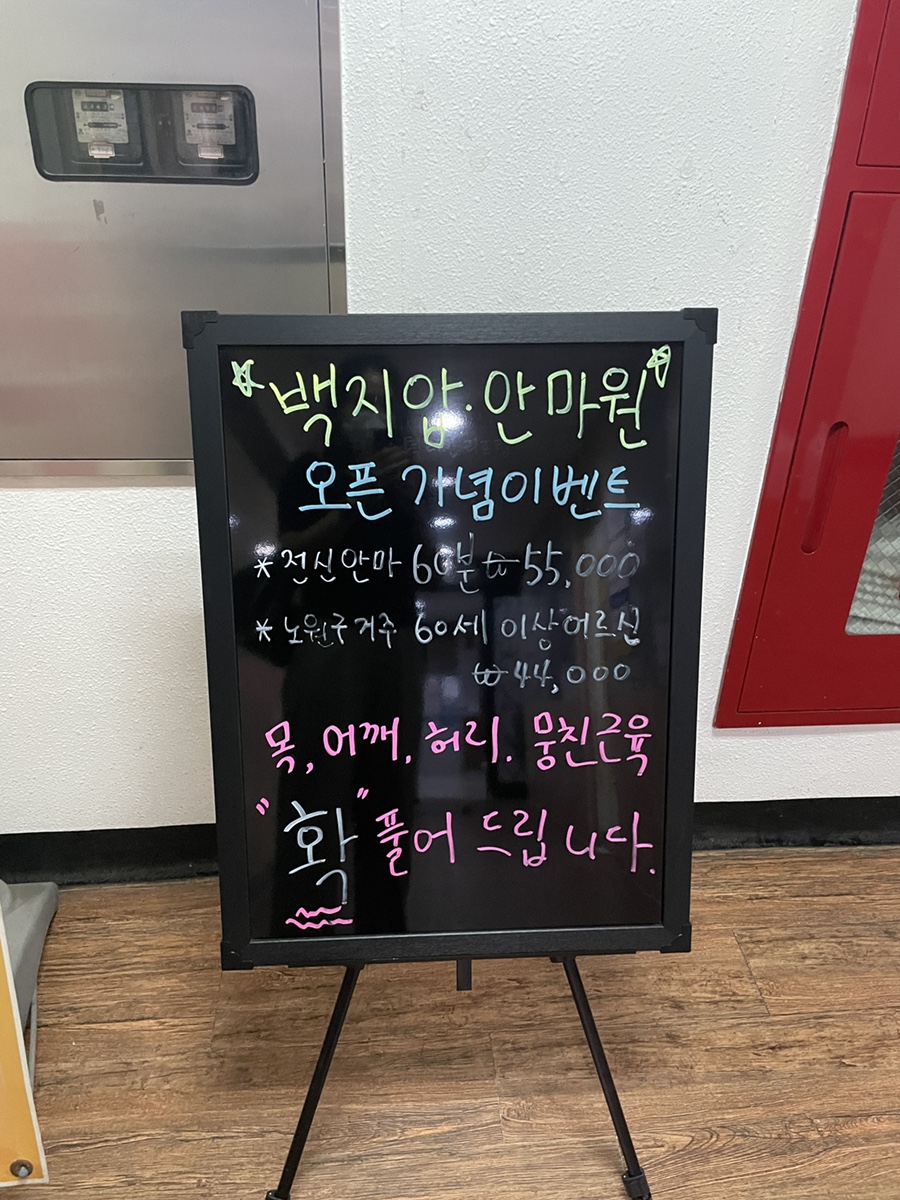 백지압·안마원
오픈기념이벤트
* 전신안마 60분 ₩55,000
* 노원구거주 60세 이상어르신
₩44,000
목, 어깨, 허리. 뭉친근육
"확" 풀어 드립니다.